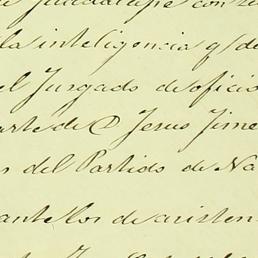 de Guadalupe con re
la inteligencia q/ de
el Juzgado de oficio
arte de D Jesus Jime
s del Partido de Na
ante llos de asisten